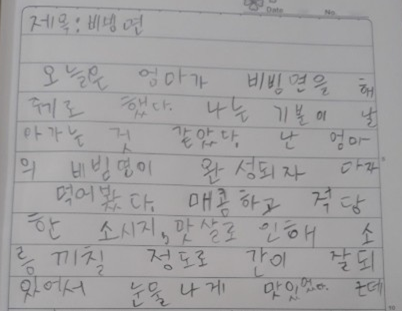 Date No.
제목: 비빔면
오늘은 엄마가 비빔면을 해
주기로 했다. 나는 기분이 날
아가는 것 같았다. 난 엄마
의 비빔면이 완성되자
먹어봤다. 매콤하고 적당
한 소시지, 맛살로 인해 소
름 끼칠 정도로 간이 잘되
있어서 눈물나게 맛있었다. 근데